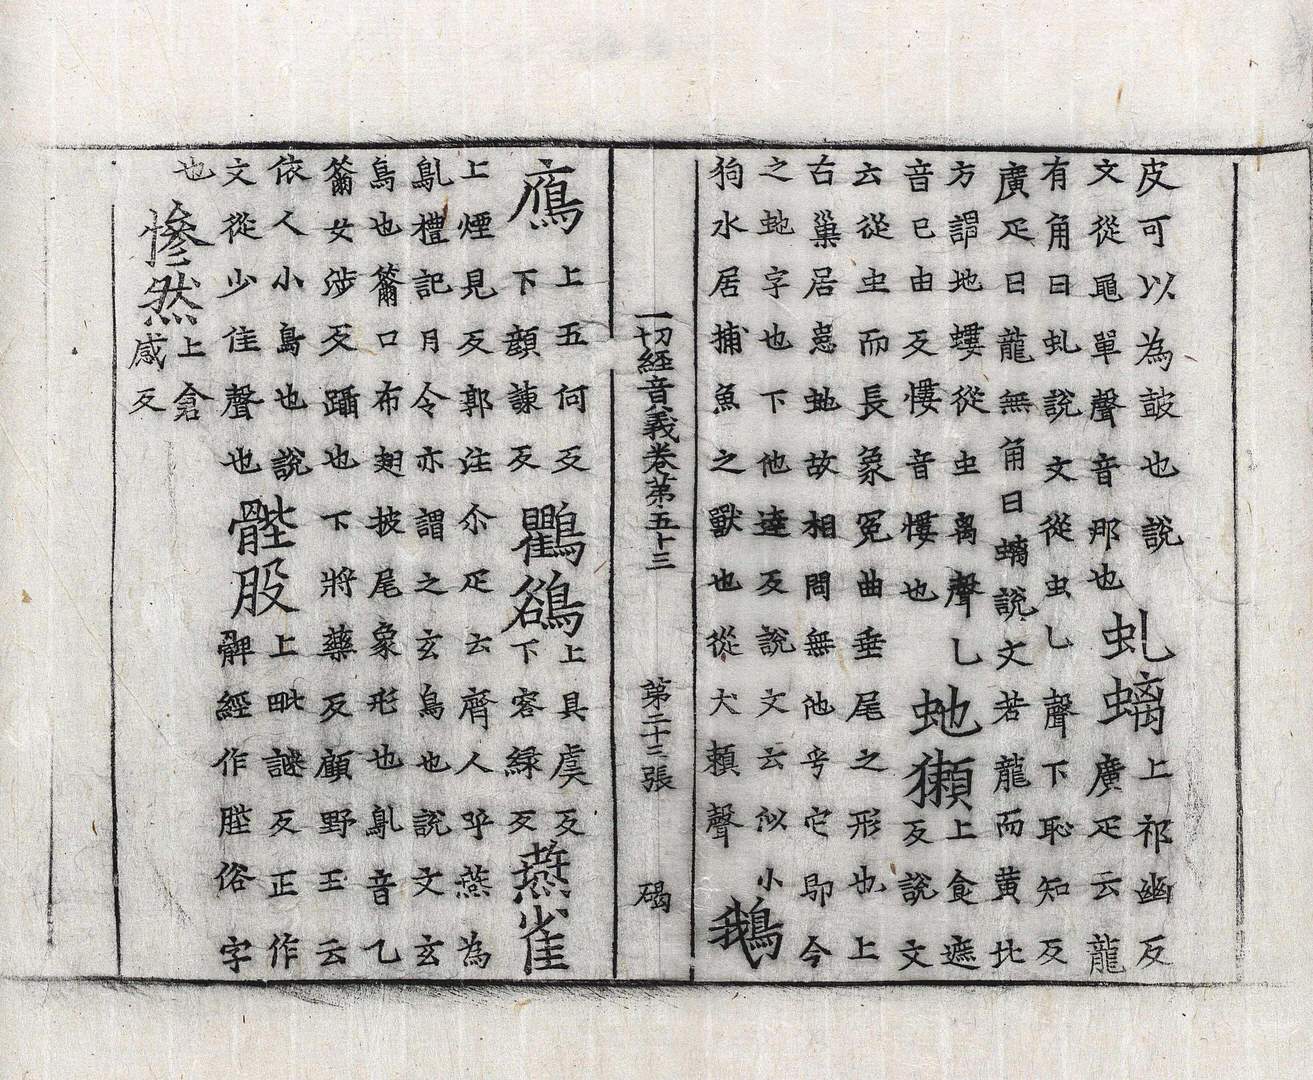 皮可以為皷也說
文從黽單聲音那也虬螭上祁幽反
廣疋云龍
有角曰虬說文從虫乚聲下恥知反
廣疋曰龍無角曰螭說文若龍而黃北
方謂地螻從虫离聲乚
音巳由反慺音慺也虵獺上食遮
反說文
云從虫而長象冤曲垂尾之形也上
古巢居患虵故相問無他乎它即今
之虵字也下他達反說文云似小
狗水居捕魚之獸也從犬賴聲鵝
一切經音義卷第五十三 第二十三張 碣
鴈上五何反
下顏諫反鸜鵒上具虞反
下容緑反燕雀
上煙見反郭注尒疋云齊人乎燕為
鳦禮記月令亦謂之玄鳥也說文玄
鳥也籋口布翅披尾象形也鳦音乙
籋女涉反躡也下將藥反顧野王云
依人小鳥也說
文從少隹聲也䏶股上毗謎反正作
髀經作䏶俗字
也慘然上倉
感反